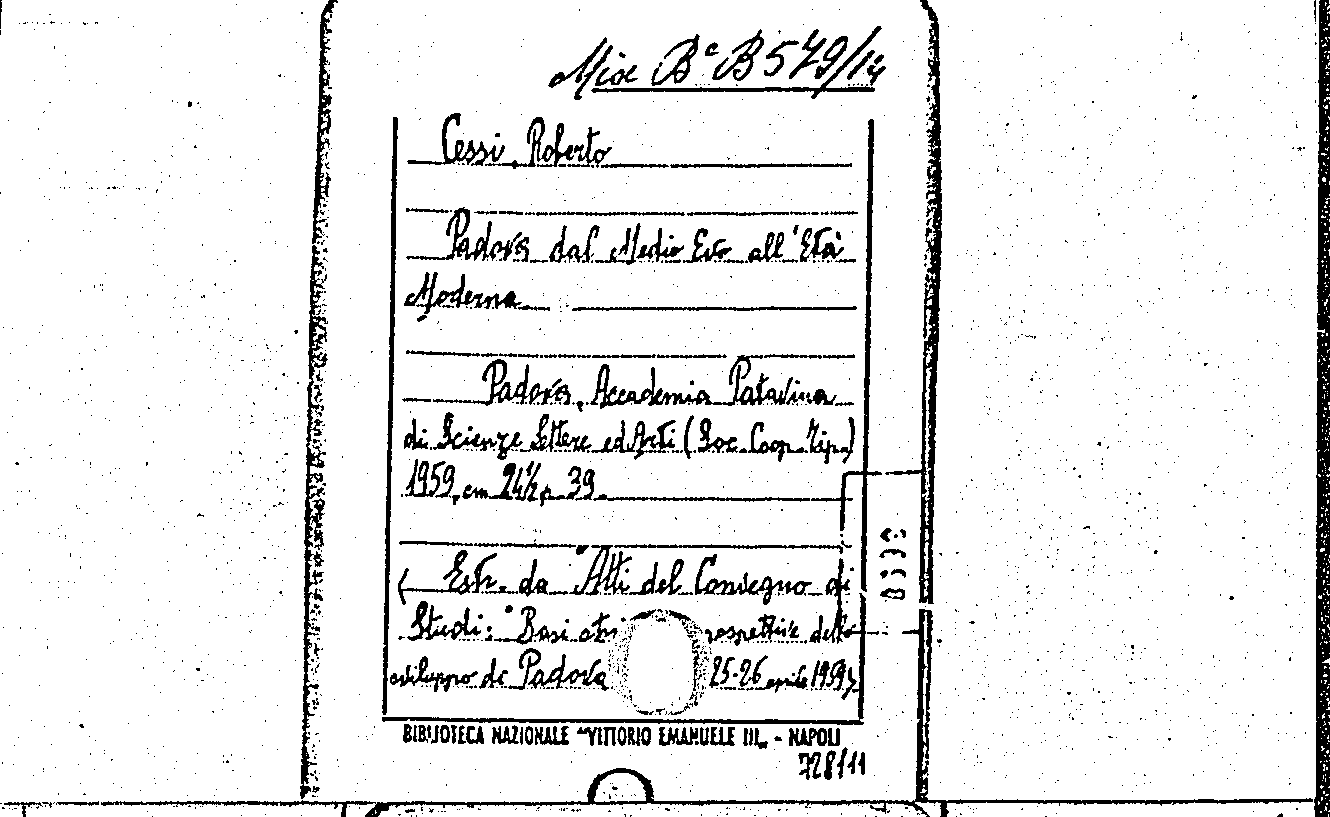 Misc Bª B 579/14
Cessi, Roberto
Padova dal Medio Evo all'Età
Moderna
Padova, Accademia Patavina
di Scienze Lettere ed Arti (Soc. Coop. Tip.)
1959, cm 24½ p. 39.
( Estr. da "Atti del Convegno di
Studi: "Basi dello
sviluppo di Padova 25-26 aprile 1959)
BIBLIOTECA NAZIONALE "VITTORIO EMANUELE III„ - NAPOLI
728/11